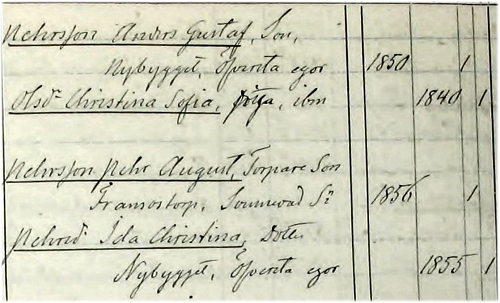 Pehrsson Anders Gustaf, Son,
Nybygget, Öfverita egor 1850 1
Olsdr Christina Sofia, ibm 1840 1
Pehrsson Pehr August, Torpare Son
Fransostorp, Sn 1856 1
Pehrsdr Ida Christina, Dotter
Nybygget, Öfverita egor 1855 1